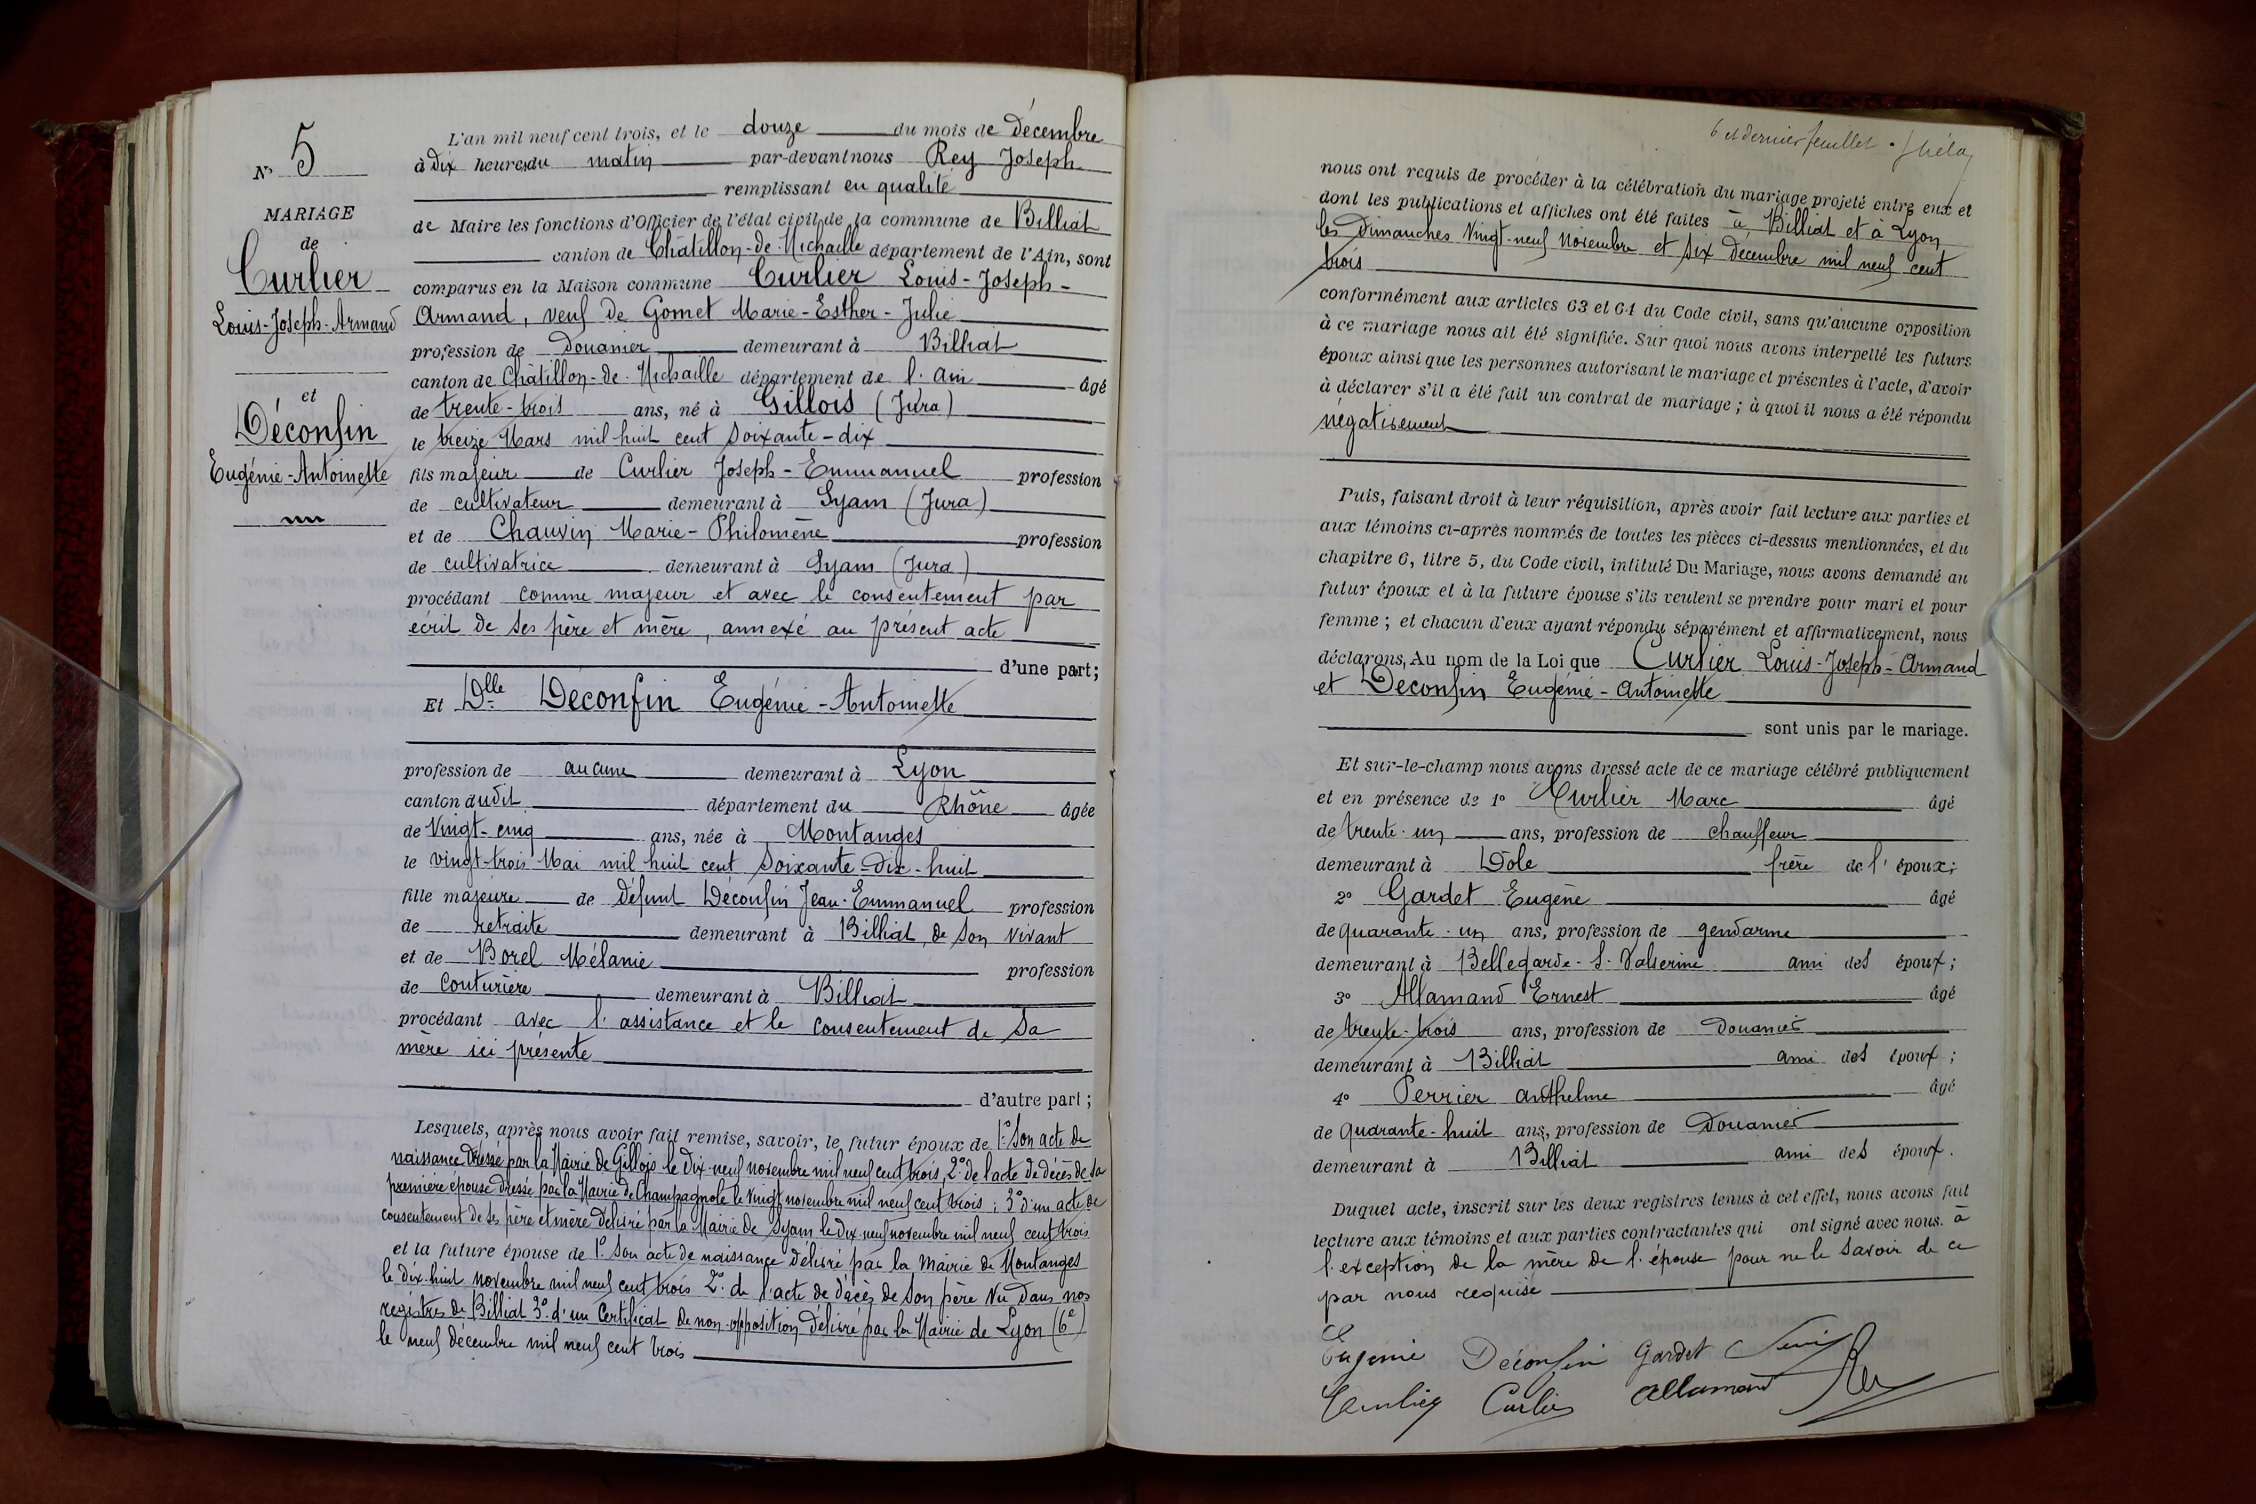 N° 5
MARIAGE
de
Curlier
Louis-Joseph-Armand
et
Déconfin
Eugénie-Antoinette
L'an mil neuf cent trois, et le douze du mois de Décembre
à Dix heures du matin par-devant nous Rey Joseph
remplissant en qualité
de Maire les fonctions d'Officier de l'état civil de la commune de Billiat
canton de Châtillon-de-Michaille département de l'Ain, sont
comparus en la Maison commune Curlier Louis-Joseph-
Armand, veuf de Gomet Marie-Esther-Julie
profession de Douanier demeurant à Billiat
canton de Châtillon-de-Michaille département de l'ain âgé
de trente-trois ans, né à Gillois (Jura)
le treize Mars mil huit cent soixante-dix
fils majeur de Curlier Joseph-Emmanuel profession
de cultivateur demeurant à Syam (Jura)
et de Chauvin Marie-Philomène profession
de cultivatrice demeurant à Syam (Jura)
procédant comme majeur et avec le consentement par
écrit de ses père et mère, annexé au présent acte
d'une part;
Et Dlle Déconfin Eugénie-Antoinette
profession de aucune demeurant à Lyon
canton dudit département du Rhône âgée
de Vingt-cinq ans, née à Montanges
le vingt-trois Mai mil huit cent soixante-dix-huit
fille majeure de Défunt Déconfin Jean-Emmanuel profession
de retraité demeurant à Billiat, de son vivant
et de Borel Mélanie profession
de couturière demeurant à Billiat
procédant avec l'assistance et le consentement de sa
mère ici présente
d'autre part;
Lesquels, après nous avoir fait remise, savoir, le futur époux de 1° Son acte de
naissance Dressé par la Mairie de Gillois le dix-neuf novembre mil neuf cent trois, 2° de l'acte de décès de sa
première épouse dressé par la Mairie de Champagnole le vingt novembre mil neuf cent trois; 3° d'un acte de
consentement de ses père et mère délivré par la Mairie de Syam le dix neuf novembre mil neuf cent trois
et la future épouse de 1° Son acte de naissance délivré par la Mairie de Montanges
le dix-huit novembre mil neuf cent trois 2° de l'acte de décès de son père Vu dans nos
registres de Billiat 3° d'un certificat de non-opposition délivré par la Mairie de Lyon (6e)
le neuf décembre mil neuf cent trois
6 et dernier feuillet
nous ont requis de procéder à la célébration du mariage projeté entre eux et
dont les publications et affiches ont été faites à Billiat et à Lyon
les Dimanches Vingt-neuf Novembre et Six Decembre mil neuf cent
trois
conformément aux articles 63 et 64 du Code civil, sans qu'aucune opposition
à ce mariage nous ait été signifiée. Sur quoi nous avons interpellé les futurs
époux ainsi que les personnes autorisant le mariage et présentes à l'acte, d'avoir
à déclarer s'il a été fait un contrat de mariage; à quoi il nous a été répondu
négativement
Puis, faisant droit à leur réquisition, après avoir fait lecture aux parties et
aux témoins ci-après nommés de toutes les pièces ci-dessus mentionnées, et du
chapitre 6, titre 5, du Code civil, intitulé Du Mariage, nous avons demandé au
futur époux et à la future épouse s'ils veulent se prendre pour mari et pour
femme; et chacun d'eux ayant répondu séparément et affirmativement, nous
déclarons, Au nom de la Loi que Curlier Louis-Joseph-Armand
et Déconfin Eugénie-Antoinette
sont unis par le mariage.
Et sur-le-champ nous avons dressé acte de ce mariage célébré publiquement
et en présence de 1° Curlier Marc âgé
de trente-un ans, profession de chauffeur
demeurant à Dôle frère de l'époux;
2° Gardet Eugène âgé
de quarante-un ans, profession de gendarme
demeurant à Bellegarde-s-Valserine ami des époux;
3° Allamand Ernest âgé
de trente-trois ans, profession de Douanier
demeurant à Billiat ami des époux;
4° Perrier Anthelme âgé
de quarante-huit ans, profession de Douanier
demeurant à Billiat ami des époux.
Duquel acte, inscrit sur les deux registres tenus à cet effet, nous avons fait
lecture aux témoins et aux parties contractantes qui ont signé avec nous. à
l'exception de la mère de l'épouse pour ne le savoir de ce
par nous requise
Eugénie Déconfin Gardet
Curlier Allamand Rey